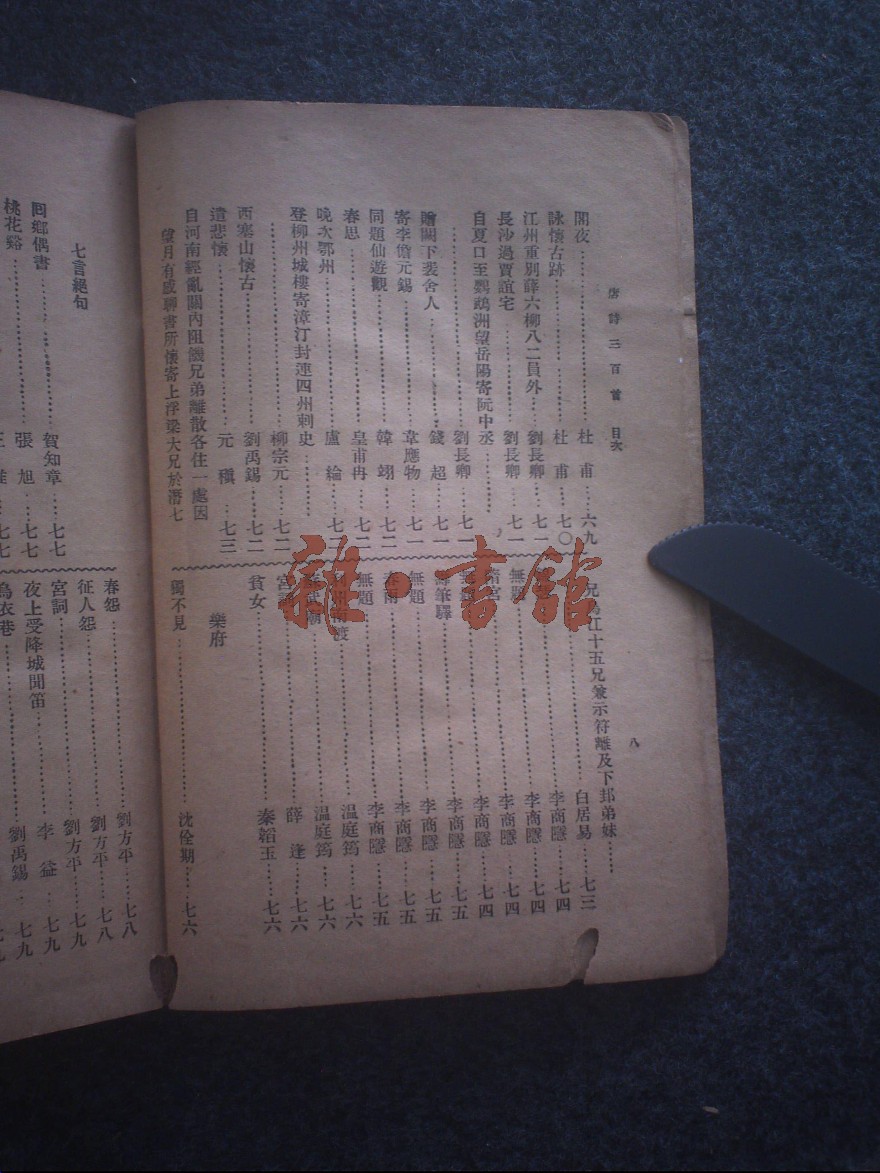 唐詩三百首 目次
八
閣夜 杜甫 六九
詠懷古跡 杜甫 七〇
江州重別薛六柳八二員外 劉長卿 七一
長沙過賈誼宅 劉長卿 七一
自夏口至鸚鵡洲望岳陽寄阮中丞
劉長卿 七一
贈闕下裴舍人 錢起 七一
寄李儋元錫 韋應物 七一
同題仙遊觀 韓翃 七二
春思 皇甫冉 七二
晚次鄂州 盧綸 七二
登柳州城樓寄漳汀封連四州刺史
柳宗元 七二
西塞山懷古 劉禹錫 七二
遣悲懷 元稹 七三
自河南經亂關內阻饑兄弟離散各住一處因
望月有感聊書所懷寄上浮梁大兄於潛七
兄烏江十五兄兼示符離及下邽弟妹
白居易 七三
李商隱 七四
李商隱 七四
無題 李商隱 七四
隋宮 李商隱 七四
無題 李商隱 七五
籌筆驛 李商隱 七五
無題 李商隱 七五
春雨 李商隱 七五
無題 李商隱 七五
利州南渡 溫庭筠 七六
蘇武廟 溫庭筠 七六
宮 薛逢 七六
貧女 秦韜玉 七六
樂府
獨不見 沈佺期 七六
七言絕句
回鄉偶書 賀知章 七七
桃花谿 張旭 七七
七七
春怨 劉方平 七八
征人怨 劉方平 七八
宮詞 劉方平 七九
夜上受降城聞笛 李益 七九
烏衣巷 劉禹錫 七九
雜·書館